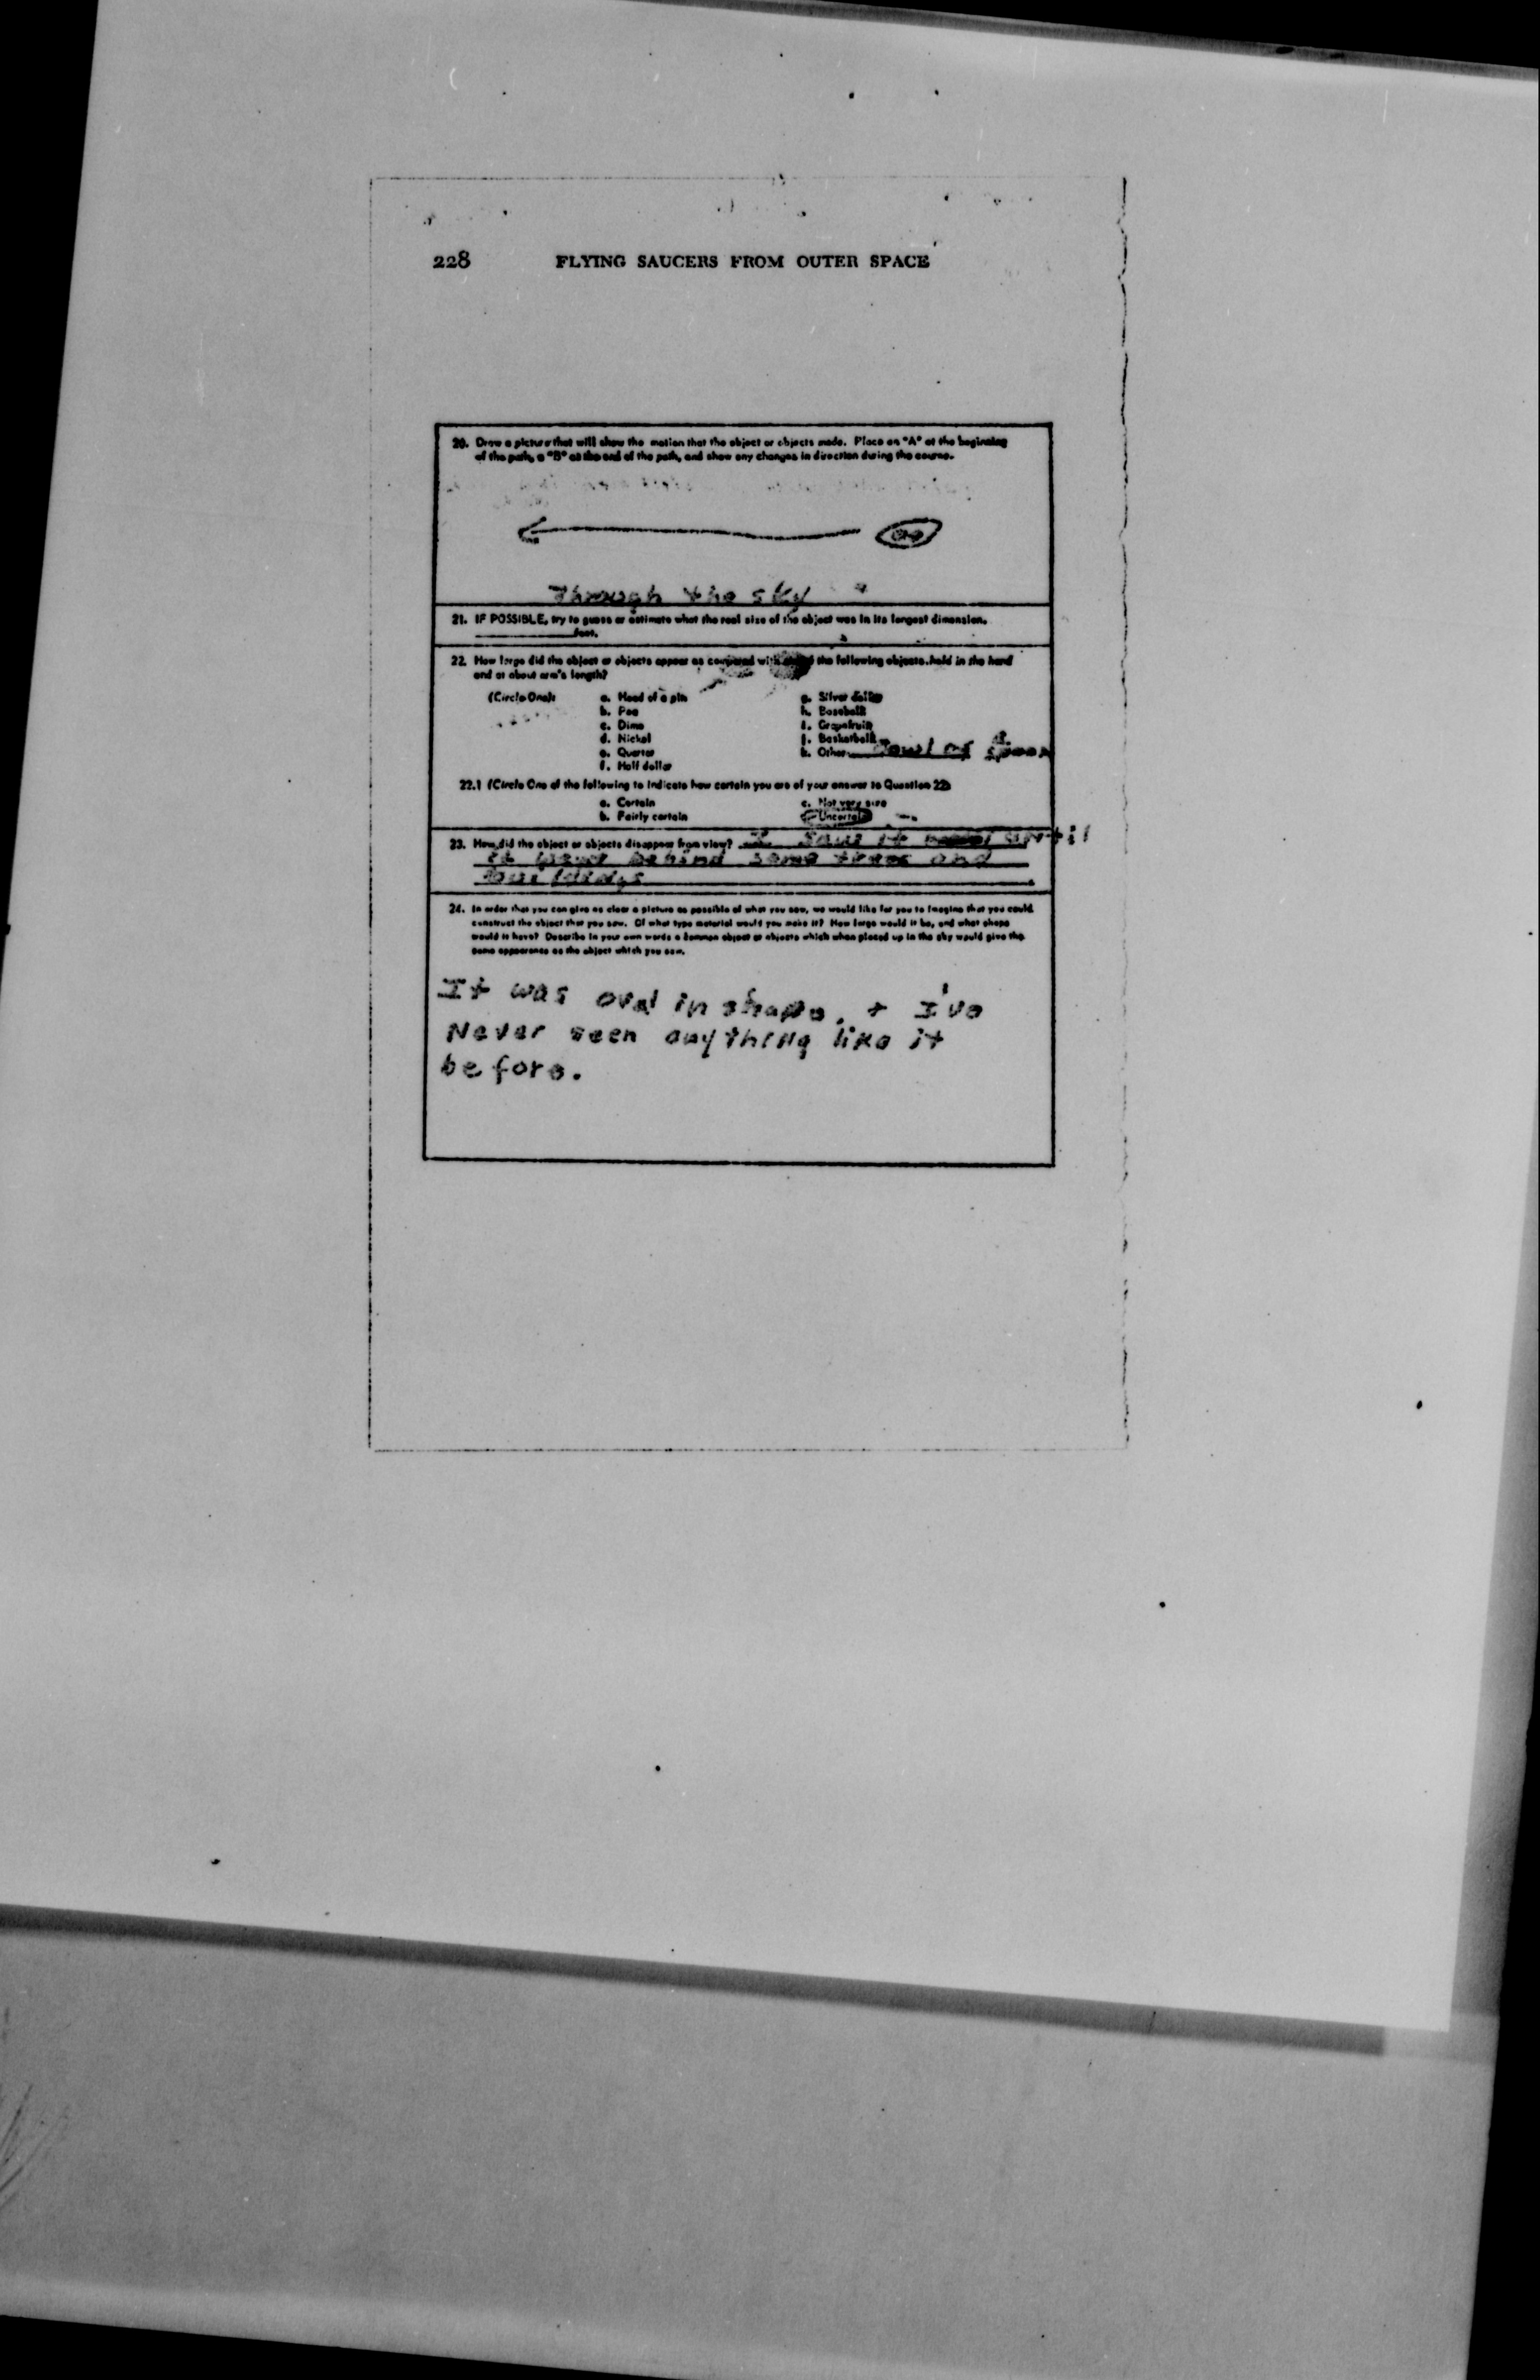 228 FLYING SAUCERS FROM OUTER SPACE
20. Draw a picture that will show the motion that the object or objects made. Place an "A" at the beginning
of the path, a "B" at the end of the path, and show any changes in direction during the course.
Through the sky
21. IF POSSIBLE, try to guess or estimate what the real size of the object was in its longest dimension.
feet.
22. How large did the object or objects appear as compared with the following objects held in the hand
and at about arm's length?
(Circle One): a. Head of a pin g. Silver dollar
b. Pea h. Baseball
c. Dime i. Grapefruit
d. Nickel j. Basketball
e. Quarter k. Other Bowl of a spoon
f. Half dollar
22.1 (Circle One of the following to indicate how certain you are of your answer to Question 22)
a. Certain c. Not very sure
b. Fairly certain d. Uncertain
23. How did the object or objects disappear from view? I saw it until
it went behind some trees and
buildings
24. In order that you can give as clear a picture as possible of what you saw, we would like for you to imagine that you could
construct the object that you saw. Of what type material would you make it? How large would it be, and what shape
would it have? Describe in your own words a common object or objects which when placed up in the sky would give the
same appearance as the object which you saw.
It was oval in shape, + I've
Never seen anything like it
before.